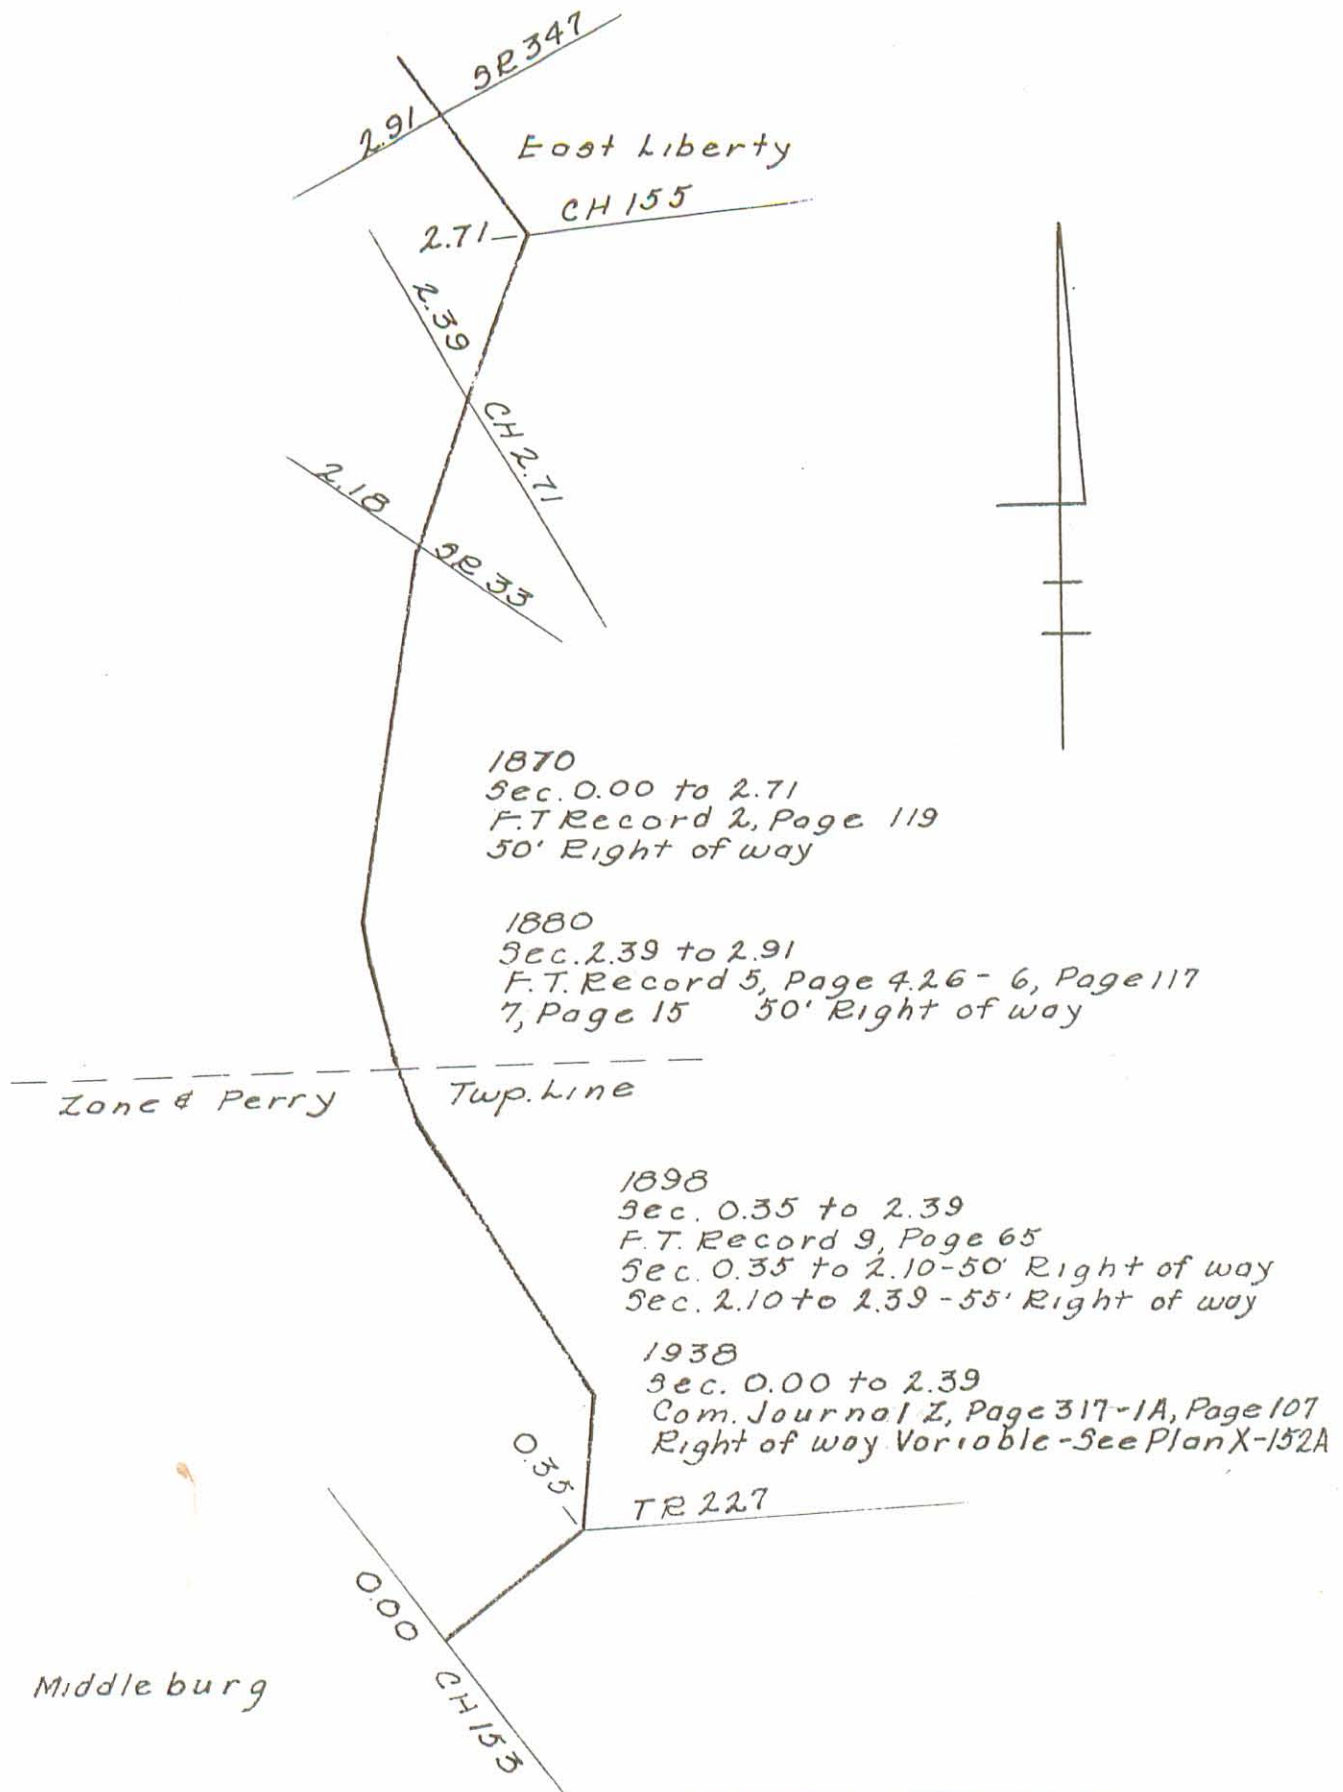 SR 347
2.91
East Liberty
CH 155
2.71
2.39
CH 2.71
2.18
SR 33
1870
Sec. 0.00 to 2.71
F.T Record 2, Page 119
50' Right of way
1880
Sec. 2.39 to 2.91
F.T. Record 5, Page 4.26 - 6, Page 117
7, Page 15 50' Right of way
Zane & Perry Twp. Line
1898
Sec. 0.35 to 2.39
F.T. Record 9, Page 65
Sec. 0.35 to 2.10-50' Right of way
Sec. 2.10 to 2.39-55' Right of way
1938
Sec. 0.00 to 2.39
Com. Journal Z, Page 317-1A, Page 107
Right of way Variable-See Plan X-152A
0.35
TR 227
0.00 CH 153
Middleburg